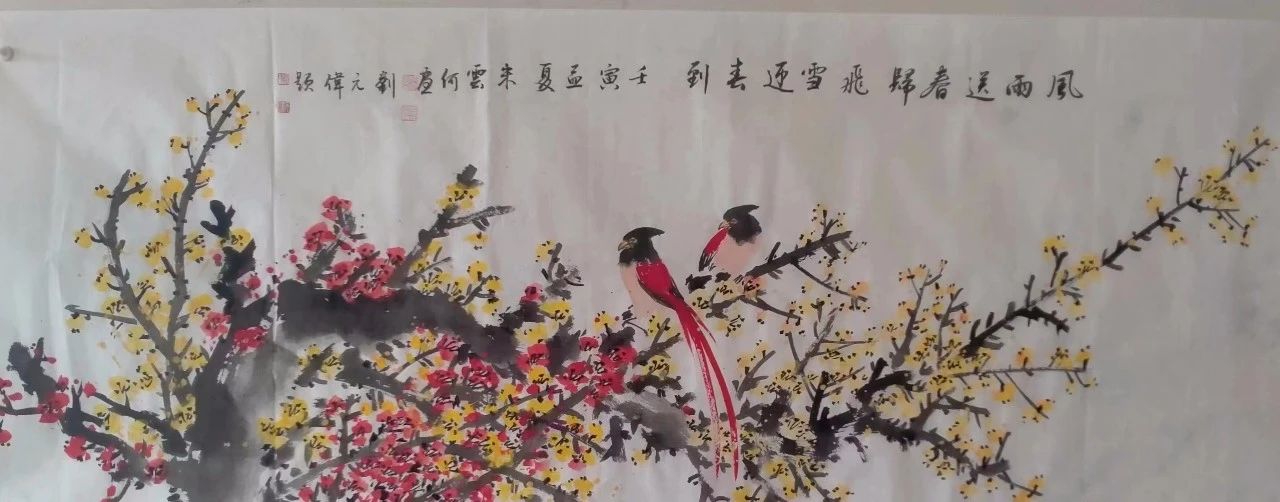 風雨送春歸飛雪迎春到 壬寅孟夏朱雲何畫 劉元偉題